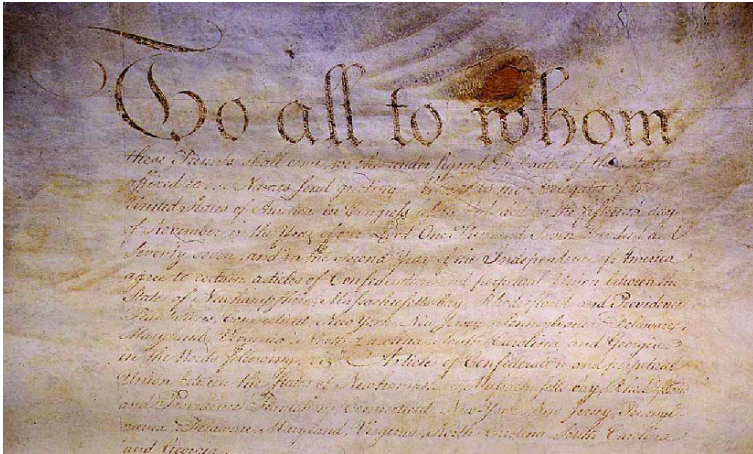 To all to whom
these Presents shall come, we the under signed Delegates of the States
affixed to our Names send greeting. Whereas the Delegates of the
United States of America in Congress assembled did on the fifteenth day
of November in the Year of our Lord One Thousand Seven Hundred and
Seventy seven, and in the Second Year of the Independence of America
agree to certain articles of Confederation and perpetual Union between the
States of Newhampshire, Massachusetts-bay, Rhodeisland and Providence
Plantations, Connecticut, New York, New Jersey, Pennsylvania, Delaware,
Maryland, Virginia, North-Carolina, South-Carolina, and Georgia
in the Words following, viz. "Articles of Confederation and perpetual
Union between the States of Newhampshire, Massachusetts-bay, Rhodeisland
and Providence Plantations, Connecticut, New-York, New-Jersey, Pennsyl-
vania, Delaware, Maryland, Virginia, North-Carolina, South-Carolina
and Georgia.